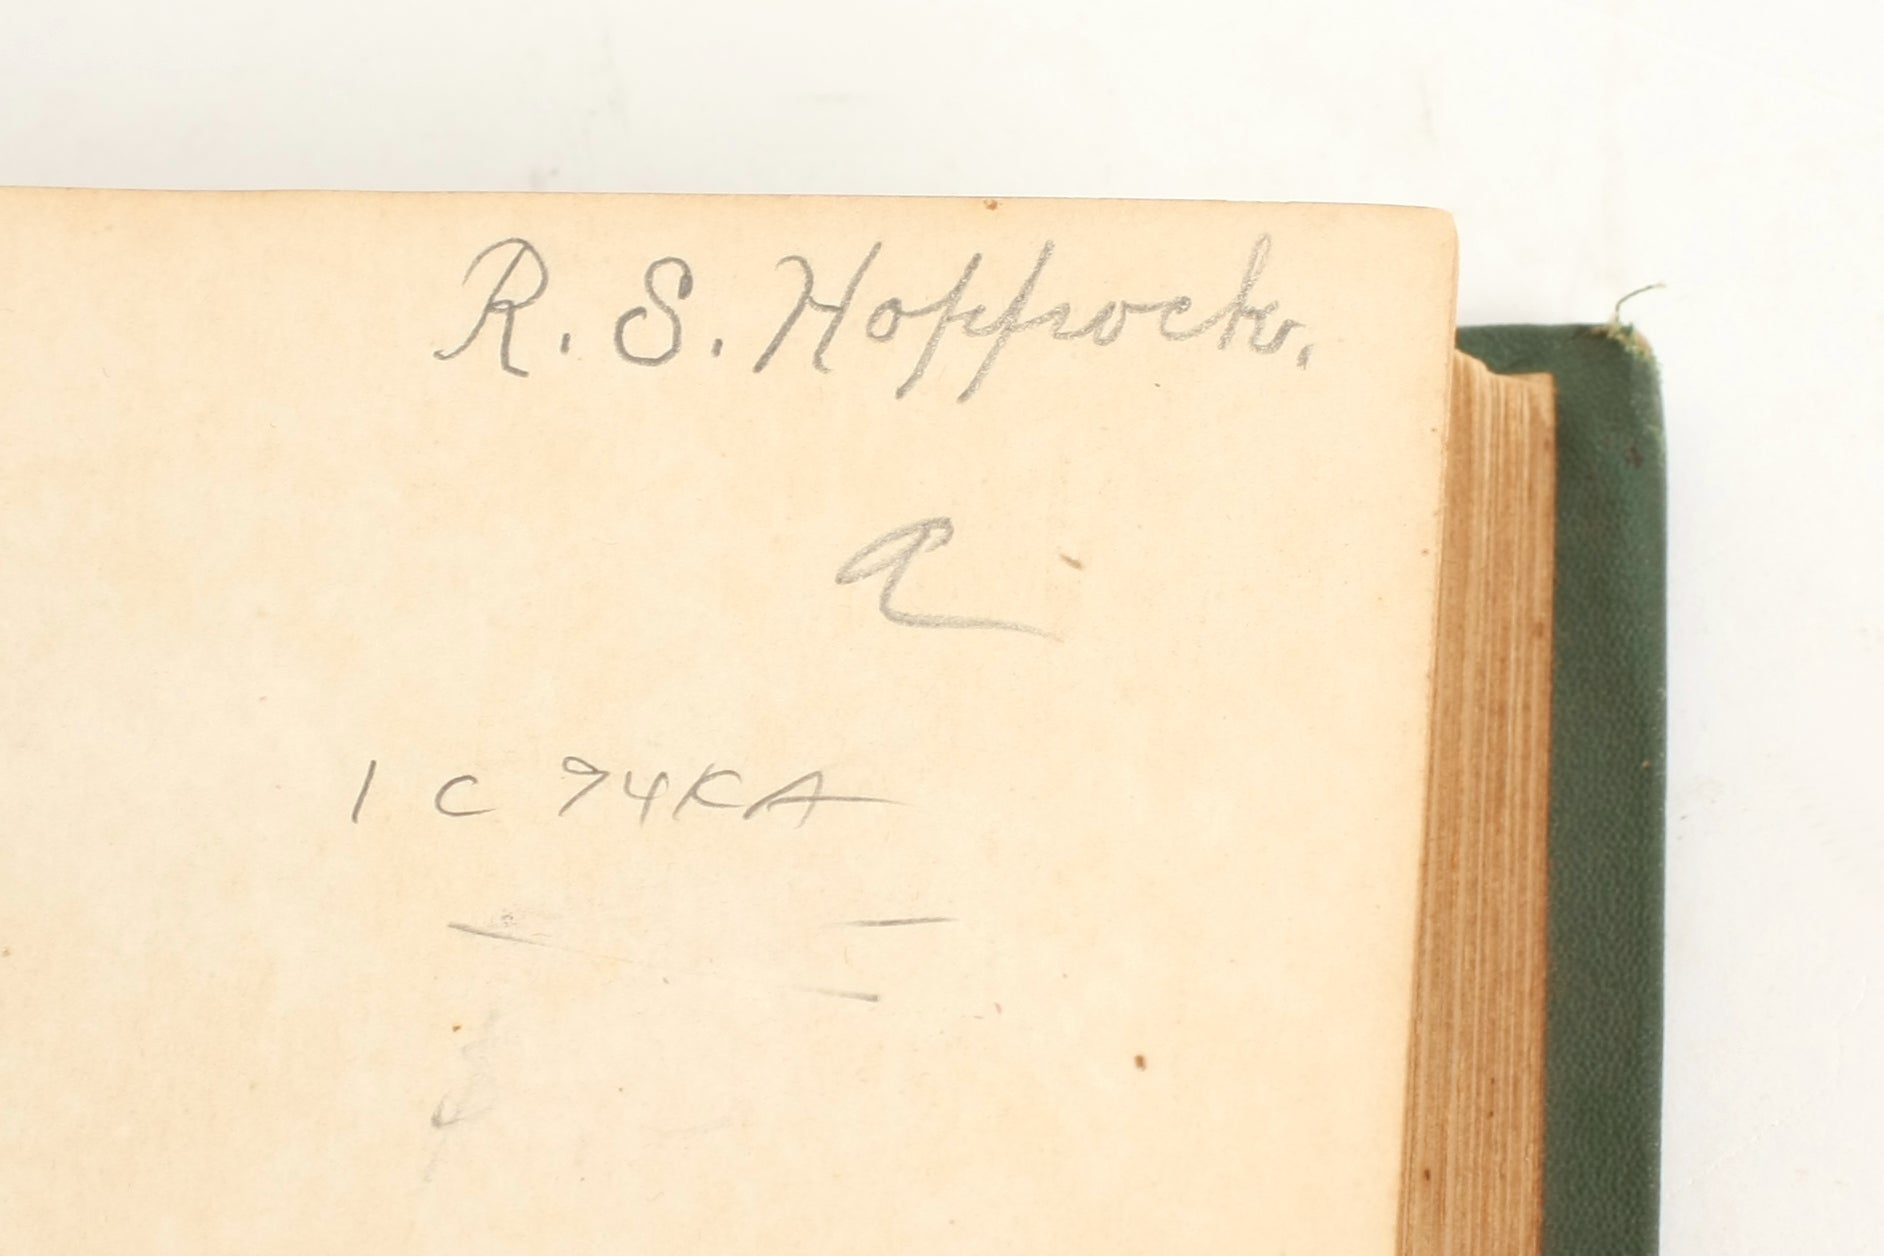 R. S. Hoppock.
a
1 C 74KA